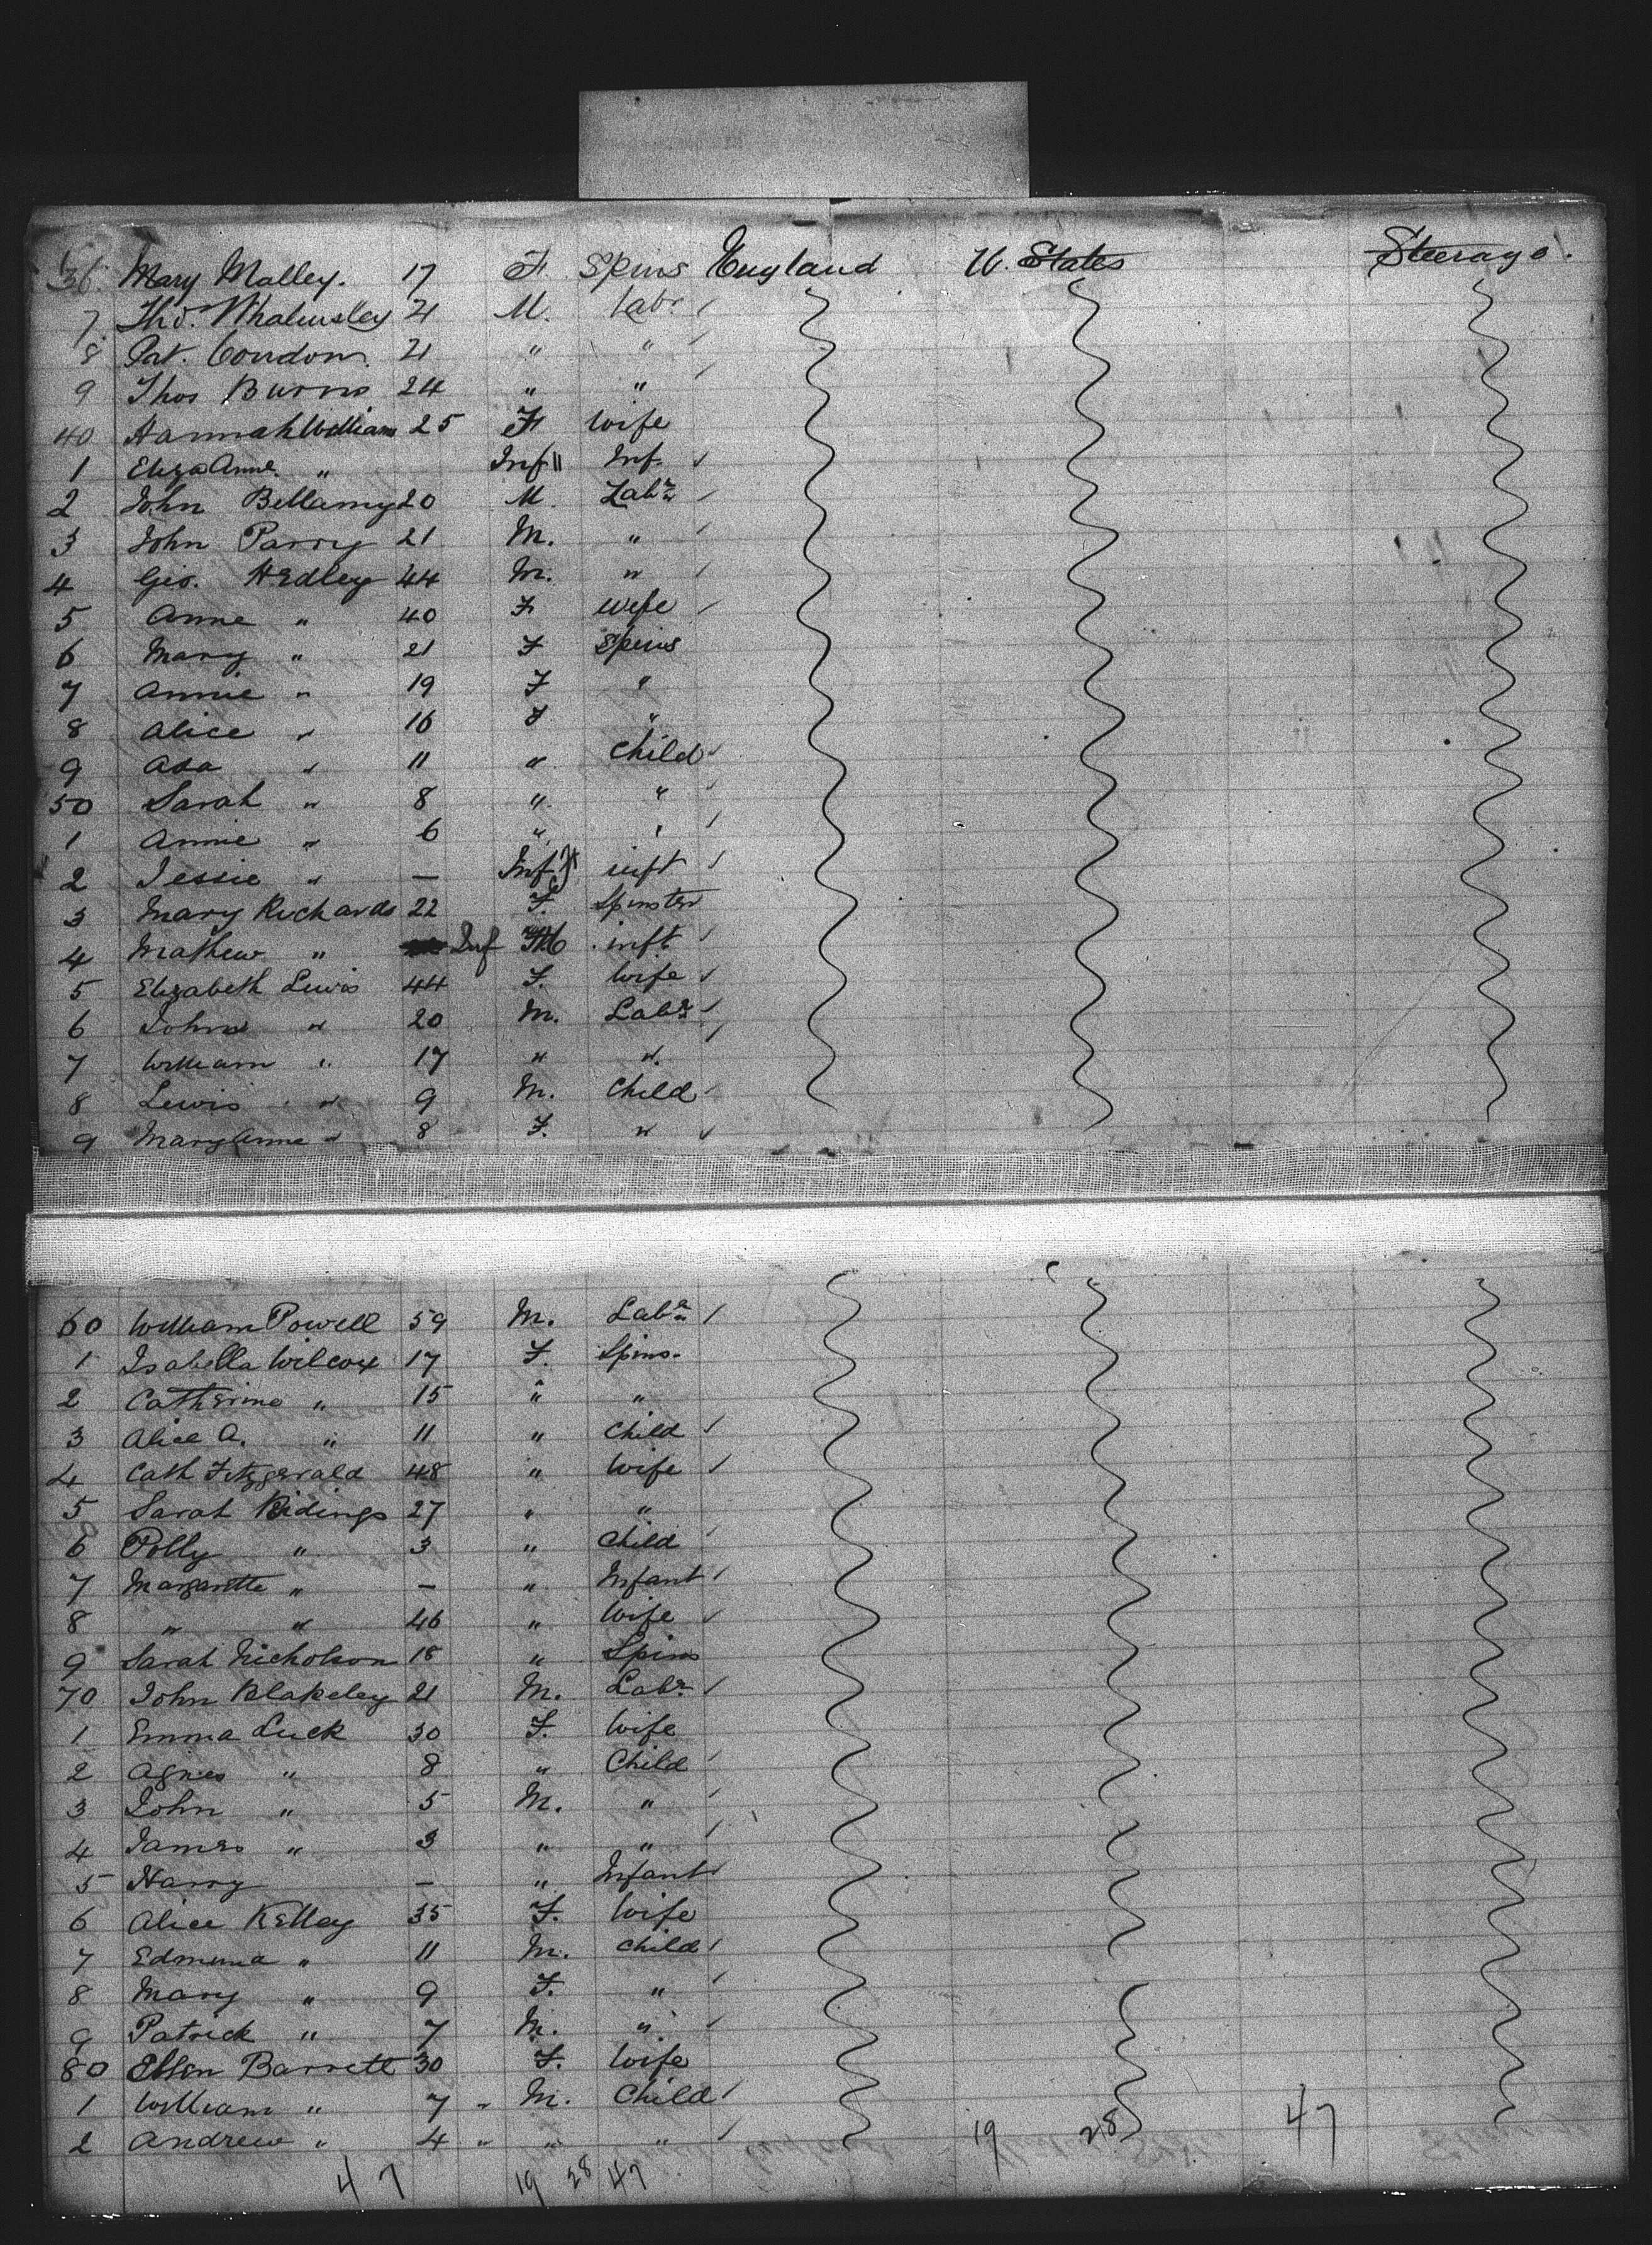 36 Mary Malley. 17 F. Spins England U. States Steerage.
7 Tho. Whalmsley 21 M. Labr
8 Pat. Condon 21 " "
9 Thos Burns 24 " "
40 Hannah William 25 F wife
1 Eliza Anne " Inf " Inf.
2 John Bellamy 20 M. Labr
3 John Parry 21 M. "
4 Geo. Hedley 44 M. "
5 Anne " 40 F wife
6 Mary " 21 F Spins
7 Annie " 19 F "
8 Alice " 16 F "
9 Ada " 11 " Child
50 Sarah " 8 " "
1 Annie " 6 " "
2 Jessie " — Inf F inft
3 Mary Richards 22 F. Spinster
4 Mathew " Inf M inft
5 Elizabeth Lewis 44 F. Wife
6 John " 20 M. Labr
7 William " 17 " "
8 Lewis " 9 M. Child
9 Mary Anne " 8 F. "
60 William Powell 59 M. Labr
1 Isabella Wilcox 17 F. Spins.
2 Catherine " 15 " "
3 Alice A. " 11 " Child
4 Cath Fitzgerald 48 " Wife
5 Sarah Ridings 27 " "
6 Polly " 3 " Child
7 Margaretta " — " Infant
8 " " 46 " Wife
9 Sarah Nicholson 18 " Spins
70 John Blakeley 21 M. Labr
1 Emma Luck 30 F. Wife
2 Agnes " 8 " Child
3 John " 5 M. "
4 James " 3 " "
5 Harry — " Infant
6 Alice Kelley 35 F. Wife
7 Edmund " 11 M. Child
8 Mary " 9 F. "
9 Patrick " 7 M. "
80 Ellen Barrett 30 F. Wife
1 William " 7 " M. Child
2 Andrew " 4 " " " 19 28 47
47 19 28 47